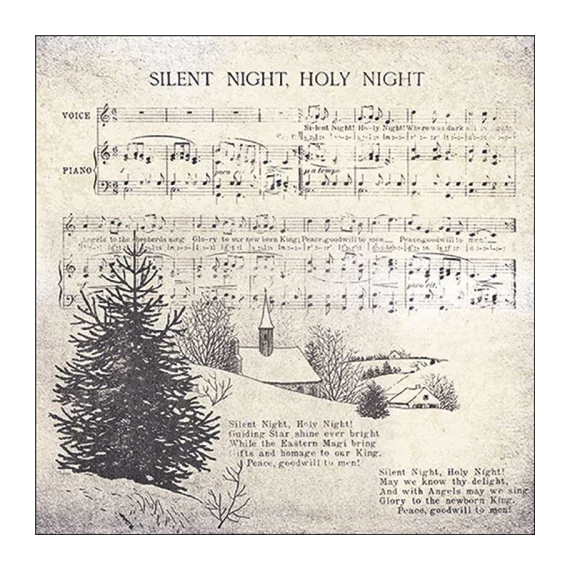 SILENT NIGHT, HOLY NIGHT
VOICE
Silent Night! Holy Night! Where was dark all is light
PIANO
a tempo
Angels to the shepherds sang Glory to our new born King; Peace, goodwill to men Peace, goodwill to men!
Silent Night, Holy Night!
Guiding Star shine ever bright
While the Eastern Magi bring
Gifts and homage to our King.
Peace, goodwill to men!
Silent Night, Holy Night!
May we know thy delight,
And with Angels may we sing
Glory to the newborn King,
Peace, goodwill to men!